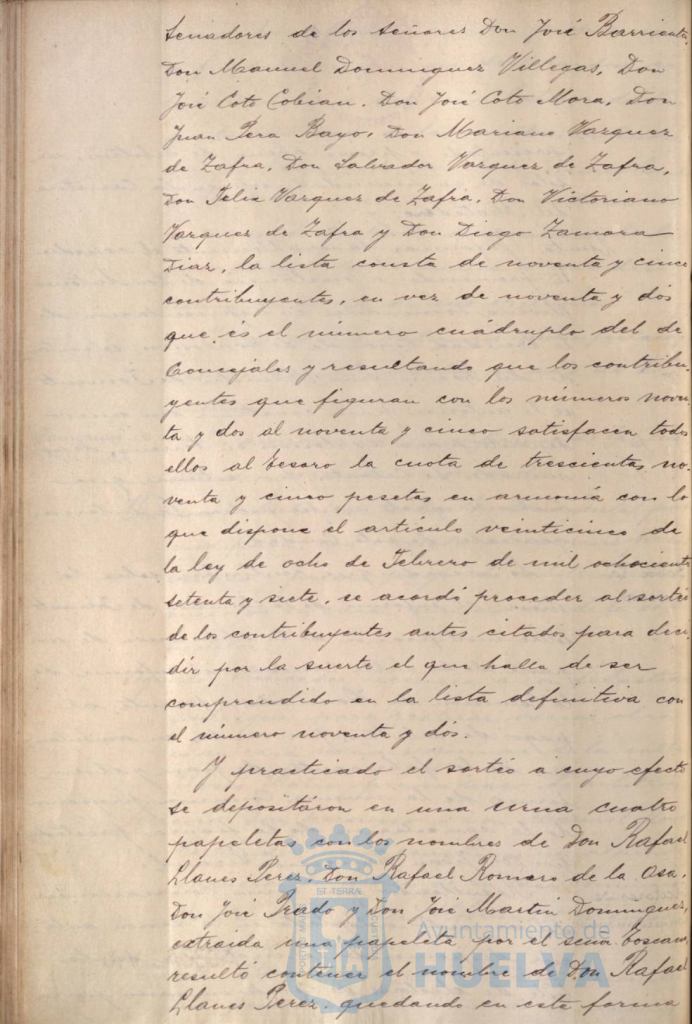 Senadores de los señores Don José Barrientos,
Don Manuel Dominguez Villegas, Don
José Coto Cobian, Don José Coto Mora, Don
Juan Pera Bayo, Don Mariano Vazquez
de Zafra, Don Salvador Vazquez de Zafra,
Don Felix Vazquez de Zafra, Don Victoriano
Vazquez de Zafra y Don Diego Zamora
Diaz, la lista consta de noventa y cinco
contribuyentes, en vez de noventa y dós
que és el número cuádruplo del de
Concejales y resultando que los contribu-
yentes que figuran con los números noven-
ta y dos al noventa y cinco satisfacen todos
ellos al Tesoro la cuota de trescientas no-
venta y cinco pesetas en armonía con lo
que dispone el artículo veinticinco de
la ley de ocho de Febrero de mil ochocientos
setenta y siete, se acordó proceder al sorteo
de los contribuyentes antes citados para deci-
dir por la suerte el que halla de ser
comprendido en la lista definitiva con
el número noventa y dós.
Y practicado el sorteo á cuyo efecto
se depositáron en una urna cuatro
papeletas con los nombres de Don Rafael
Llanes Perez, Don Rafael Romero de la Osa,
Don José Prado y Don José Martin Dominguez,
extraida una papeleta por el señor Toscano,
resultó contener el nombre de Don Rafael
Llanes Perez, quedando en esta forma
ET TERRÆ
Ayuntamiento de
HUELVA